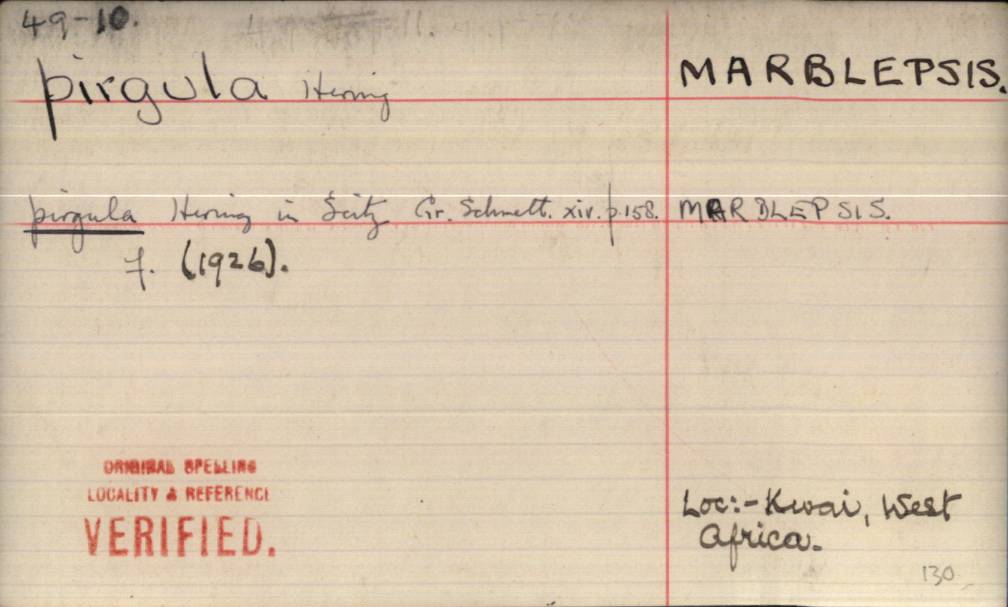 49-10.
pirgula Hering MARBLEPSIS.
pirgula Hering in Seitz Gr. Schmett. xiv. p.158. MARBLEPSIS.
f. (1926).
ORIGINAL SPELLING
LOCALITY & REFERENCE
VERIFIED.
Loc:- Kwai, West
Africa.
130